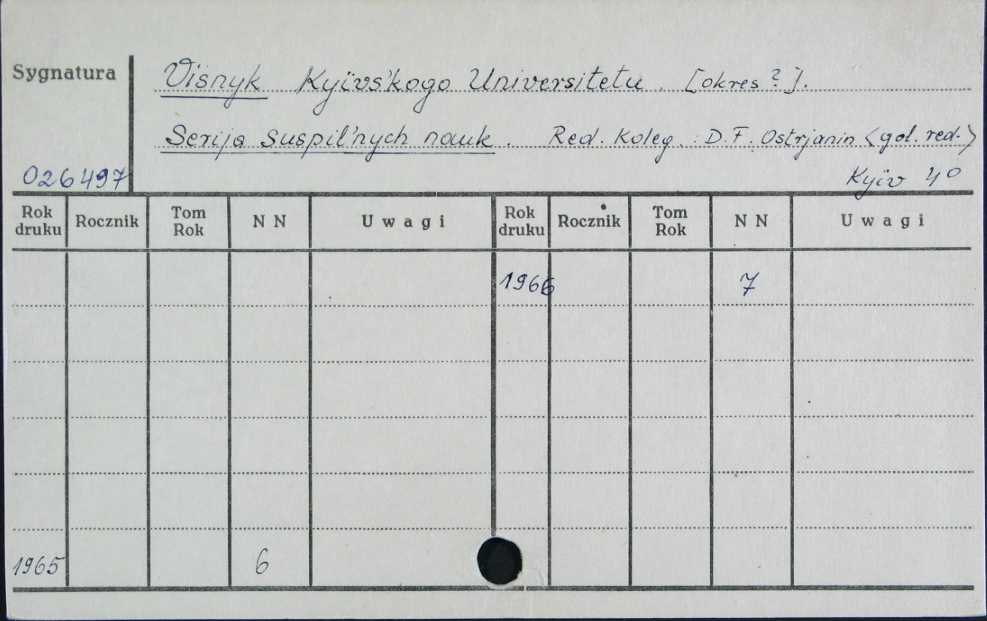 Sygnatura
Visnyk Kyïvs'kogo Universitetu. [okres?].
Serija suspil'nych nauk. Red. Koleg.: D. F. Ostrjanin <gol. red.>
026497
Kyïv 4°
Rok druku Rocznik Tom Rok N N Uwagi Rok druku Rocznik Tom Rok N N Uwagi
1966 7
1965 6